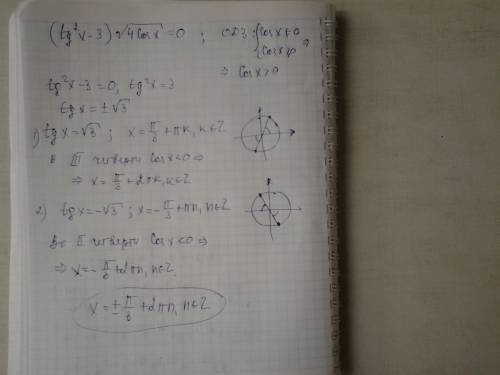 (tg²x-3)√4cosx = 0 ; ОДЗ: {cosx≠0 {cosx≥0 ⇒
⇒ cosx>0
tg²x-3=0; tg²x=3
tgx=±√3
1) tgx=√3 ; x=π/6+πk, k∈Z
в III четверти cosx<0 ⇒
⇒ x=π/6+2πk, k∈Z
2) tgx=-√3 ; x=-π/3+πn, n∈Z
Во II четверти cosx<0 ⇒
⇒ x=-π/6+2πn, n∈Z
x=±π/6+2πn, n∈Z